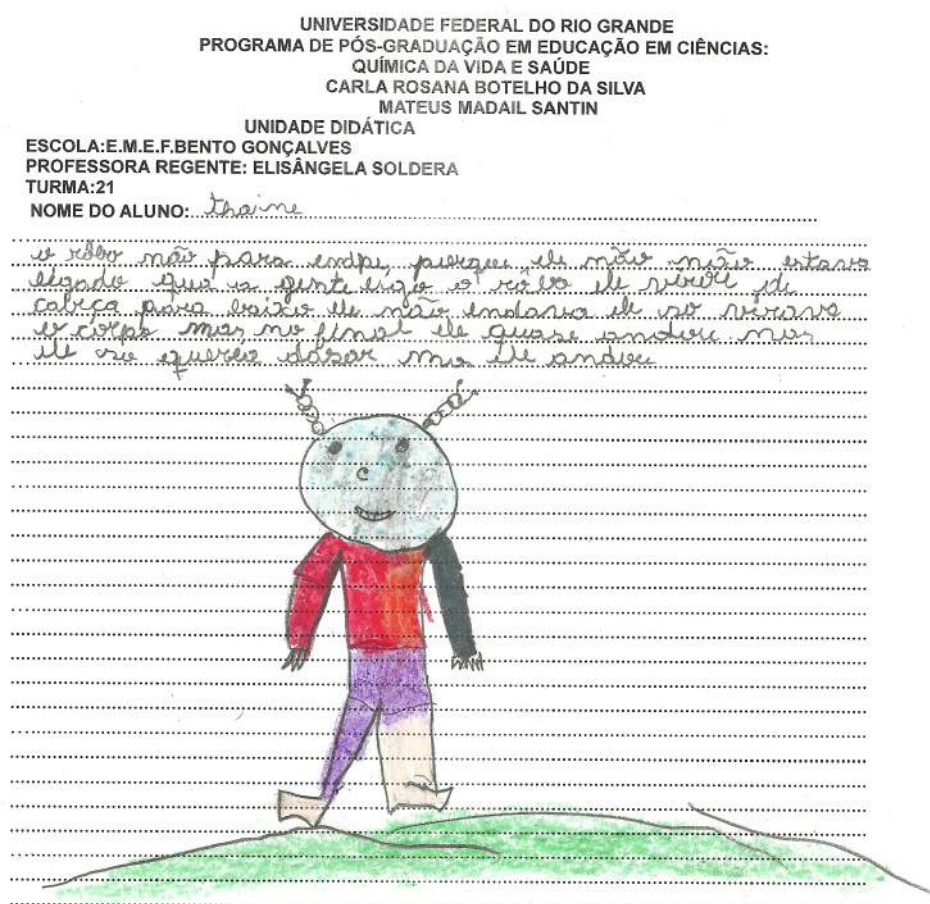 UNIVERSIDADE FEDERAL DO RIO GRANDE
PROGRAMA DE PÓS-GRADUAÇÃO EM EDUCAÇÃO EM CIÊNCIAS:
QUÍMICA DA VIDA E SAÚDE
CARLA ROSANA BOTELHO DA SILVA
MATEUS MADAIL SANTIN
UNIDADE DIDÁTICA
ESCOLA:E.M.E.F.BENTO GONÇALVES
PROFESSORA REGENTE: ELISÂNGELA SOLDERA
TURMA:21
NOME DO ALUNO: thaine
o não para porque ele não não estava
a gente o ele de
cabeça para baixo ele não andava ele so virava
o corpo mas no final ele quase andou mas
ele so ele andou